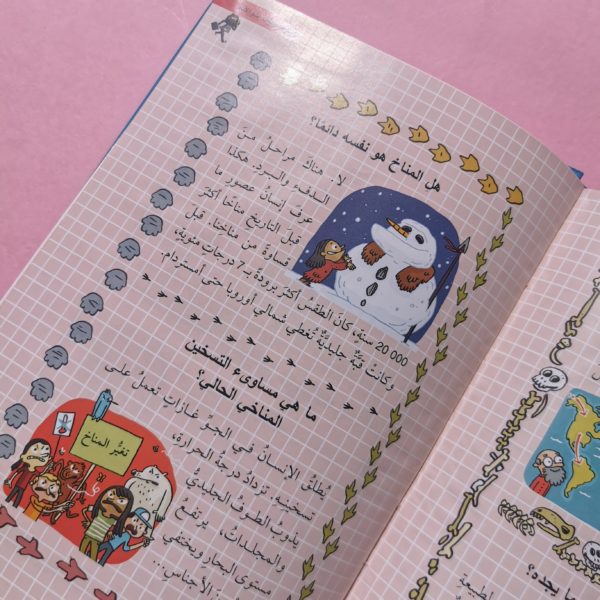 هل المناخ هو نفسه دائمًا؟
لا. هناك مراحلُ منَ
الدفء والبرد. هكذا
عرفَ إنسانُ عصورِ ما
قبلَ التاريخ مناخًا أكثرَ
قساوةً من مناخنا. قبل
20 000 سنةٍ، كانَ الطقسُ أكثرَ برودةً بـ 7 درجات مئوية،
وكانت قبّةٌ جليديّةٌ تُغطي شمالي أوروبا حتى أمستردام.
ما هي مساوىء التسخين
المناخي الحالي؟
يُطلقُ الإنسانُ في الجوِّ غازاتٍ تعملُ على
تسخينِهِ. تزدادُ درجةُ الحرارة،
يذوبُ الطوفُ الجليديُّ
والمجلداتُ، يرتفعُ
مستوى البحار ويختفي
الأجناس...
تغيُّر المناخ
ما يجده؟